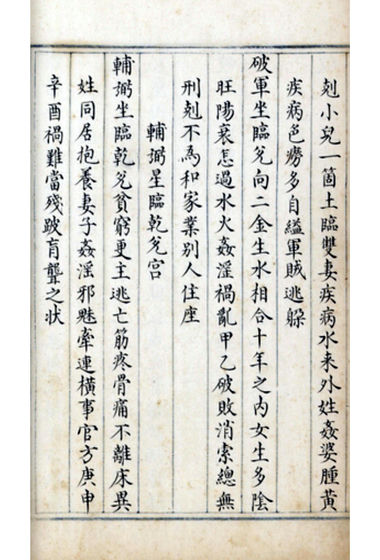 剋小兒一箇土臨雙妻疾病水来外姓姦婆腫黃
疾病色癆多自縊軍賊逃躲
破軍坐臨兌向二金生水相合十年之內女生多陰
旺陽衰怎過水火姦淫禍亂甲乙破敗消索總無
刑剋不為和家業别人住座
輔弼星臨乾兌宫
輔弼坐臨乾兌貧窮更主逃亡筋疼骨痛不離床異
姓同居抱養妻子姦淫邪魅牽連橫事官方庚申
辛酉禍難當殘跛盲聾之状